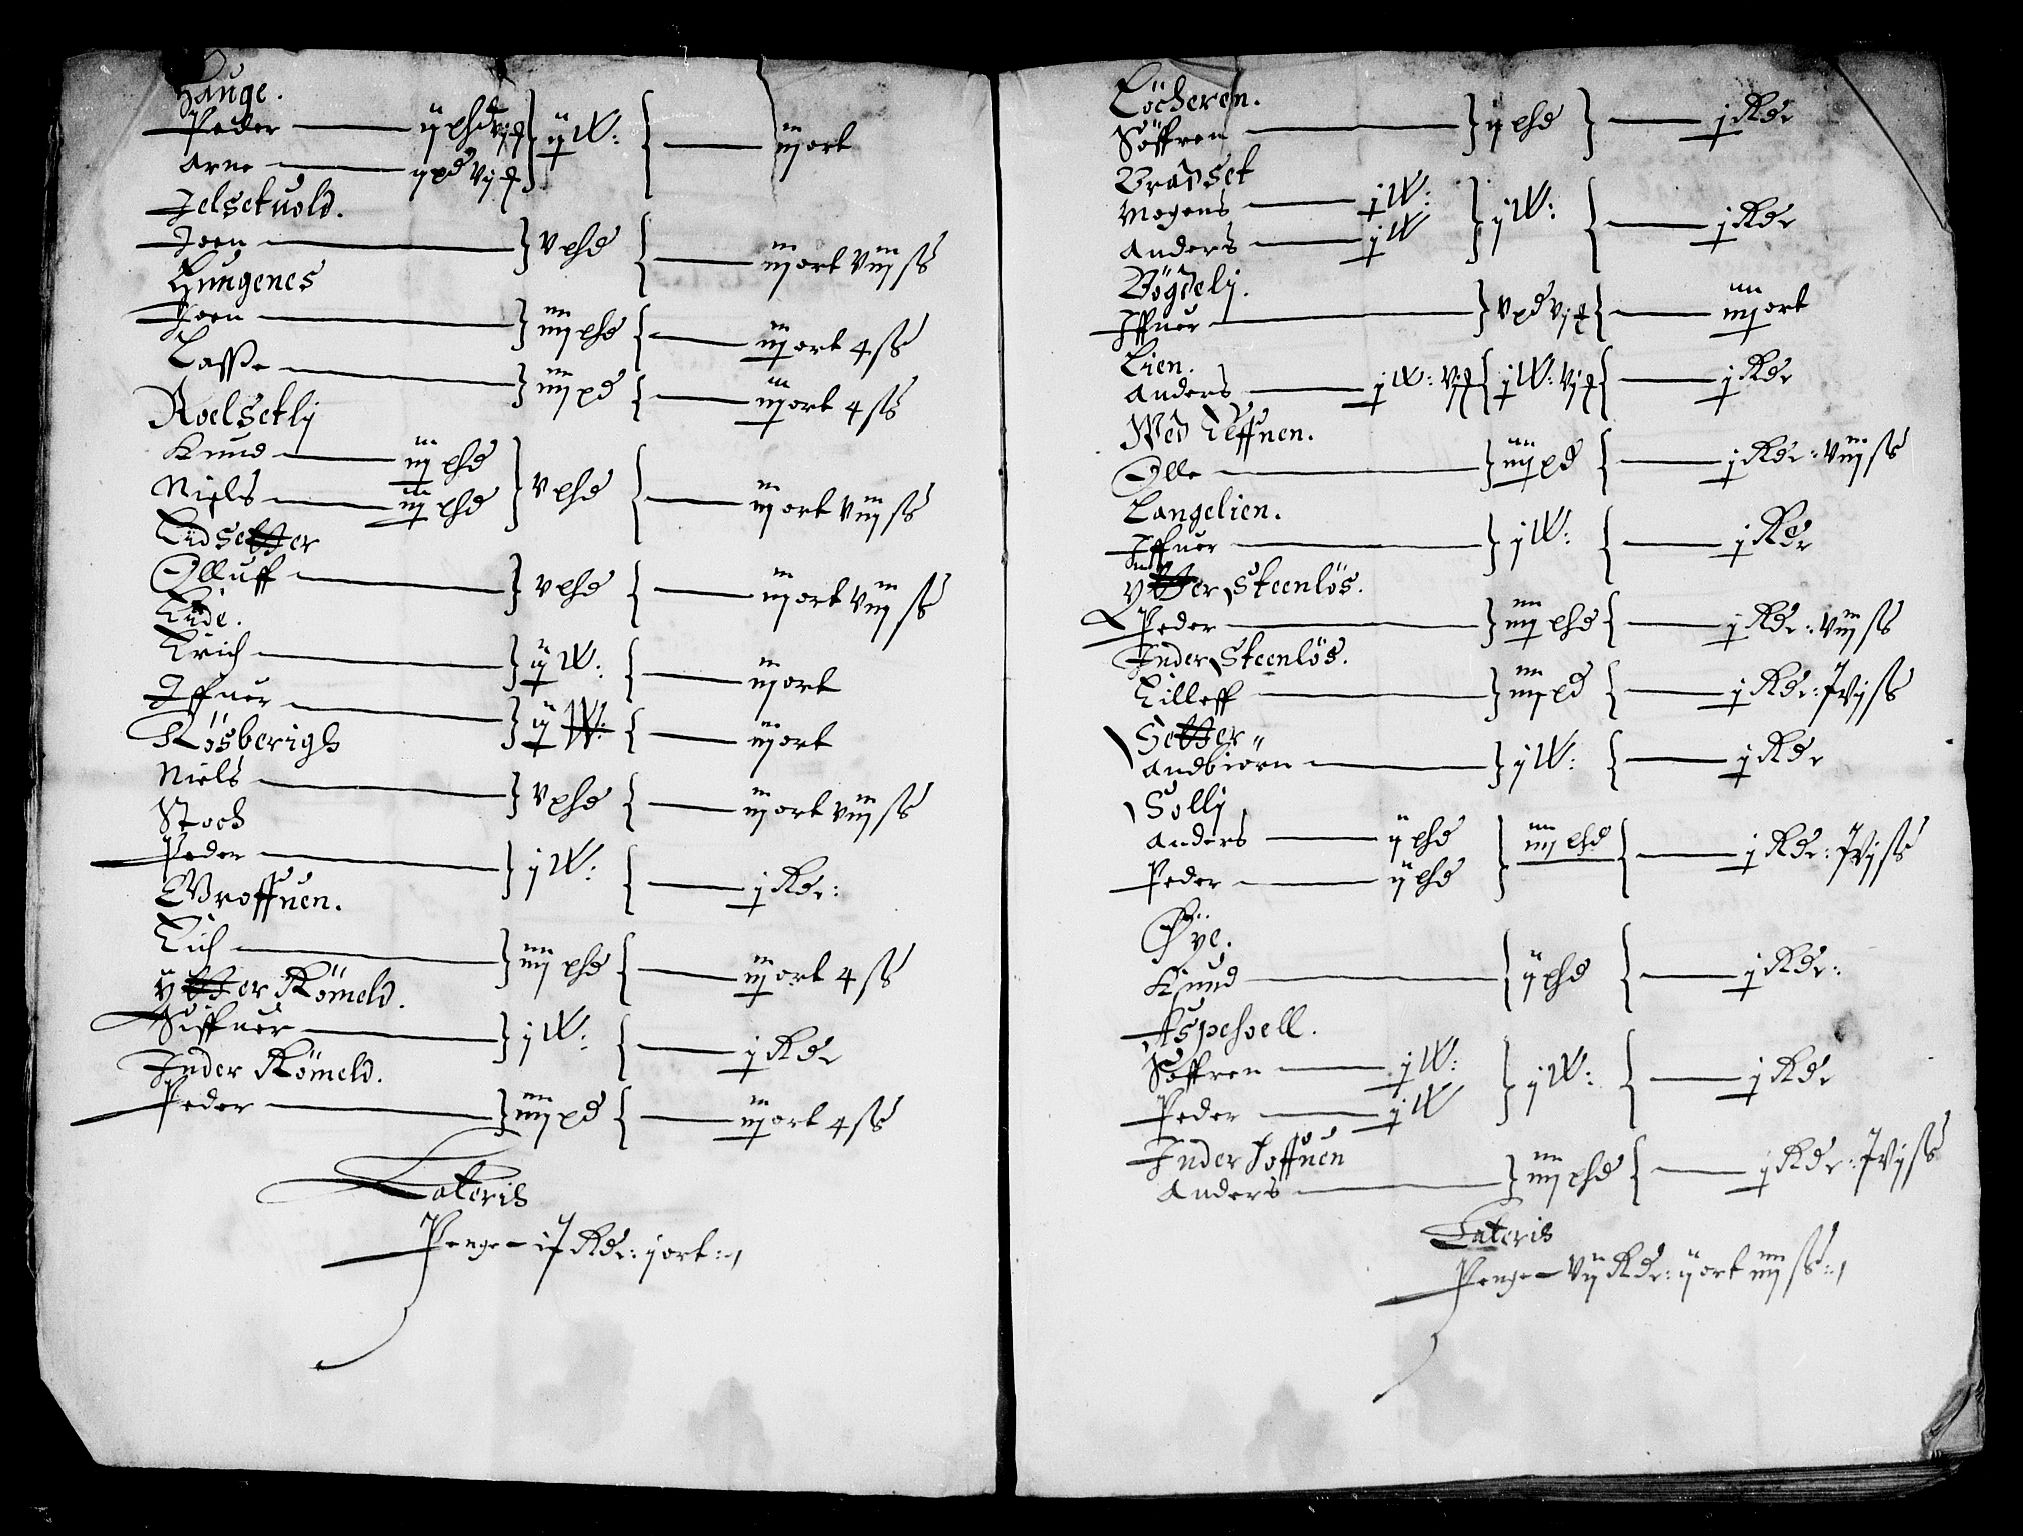 Hauge.
Peder — ij phd vij ₰ } ij W: { — iij ort
Arne — ij pd vij ₰
Jelsetuold.
Joen — } v phd { — iij ort viij ß
Hungenes
Joen — } iiij phd { — iij ort 4 ß
Lasse — } iiij pd { — iij ort 4 ß
Roelsetlij
Knud — iij phd } v phd { — iij ort viij ß
Niels — iij phd
Eidsetter
Olluff — } v phd { — iij ort viij ß
Eide.
Erich — } ij W: { — iij ort
Iffuer — } ij W: { — iij ort
Rösberigh
Niels — } v phd { — iij ort viij ß
Stoch
Peder — } j W: { — j Rdr:
Wroffuen.
Eich — } iiij phd { — iij ort 4 ß
Ytter Römeld.
Siffuer — } j W: { — j Rdr
Inder Römeld.
Peder — } iiij pd { — iij ort 4 ß
Lateris
Penge — 17 Rdr: j ort:
Löcheren.
Söffren — } ij phd } — j Rdr
Bradset
Mogens — j W: } j W: { — j Rdr
Anders — j W
Bögdelij.
Iffuer — } v pd vij ₰ { — iiij ort
Lien.
Anders — j W: vij ₰ { j W: vij ₰ { — j Rdr
Wed Elffuen.
Olle — } iiij pd { — j Rdr: viij ß
Langelien.
Iffuer — } j W: { — j Rdr
Ytter Steenlös.
Peder — } iiij phd { — j Rdr: viij ß
Inder Steenlös.
Eilleff — } iiij pd { — j Rdr: Jvj ß
Setter
Andbiörn — } j W: { — j Rdr
Sollij
Anders — ij phd } iiij phd { — j Rdr: Jvj ß
Peder — ij phd
Øye.
Knud — { ij phd { — j Rdr:
Aspehoell.
Söffren — j W: } j W: { — j Rdr
Peder — j W
Inder Hoffuen
Anders — } iiij phd { — j Rdr: Jvj ß
Lateris
Penge — vij Rdr: ij ort iiij ß: